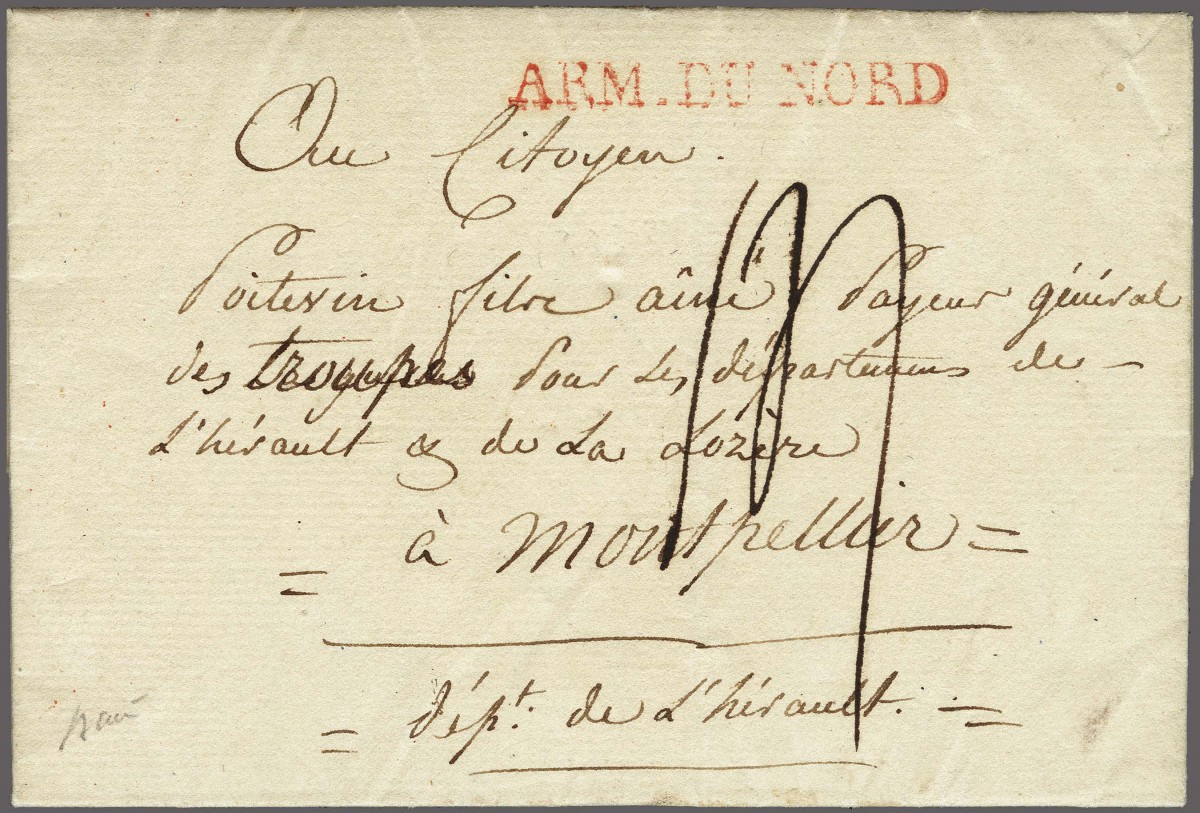 ARM. DU NORD
Au Citoyen.
Poitevin filre aîné Payeur général
des troupes pour les départemens de -
L'hérault & de La Lozère
= à Montpellier =
= dépt. de L'hérault. =